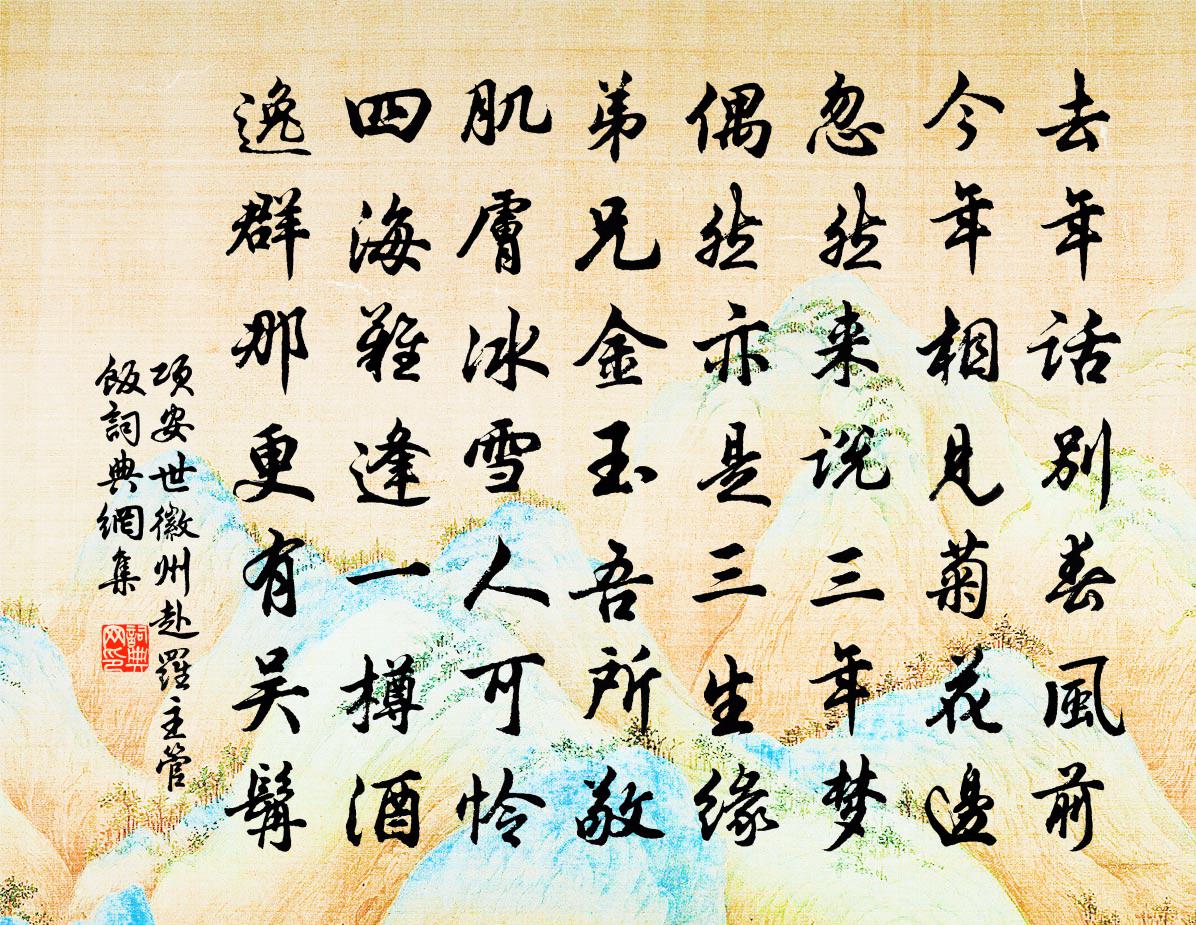 去年话别春風前
今年相見菊花邊
忽然来说三年梦
偶然亦是三生緣
弟兄金玉吾所敬
肌膚冰雪人可怜
四海難逢一樽酒
逸群那更有吴髯
項安世徽州赴羅主管
飯詞典網集
詞典网印